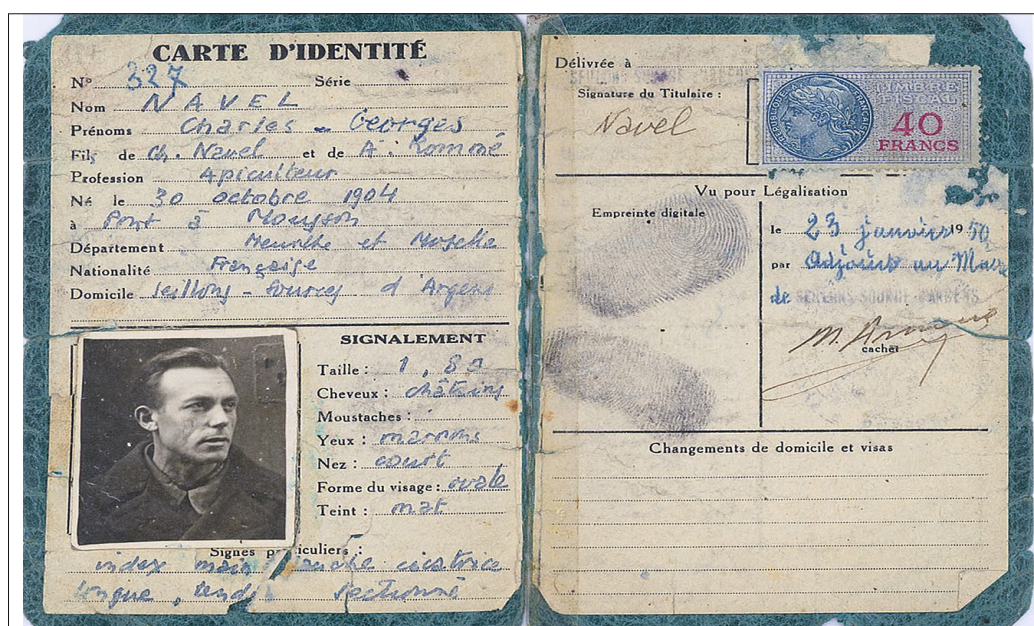 CARTE D'IDENTITÉ
N° 327 Série
Nom NAVEL
Prénoms Charles - Georges
Fils de Ch. Navel et de A. Romné
Profession Apiculteur
Né le 30 octobre 1904
à Pont à Mousson
Département Meurthe et Moselle
Nationalité Française
Domicile Seillons - Sources d'Argens
SIGNALEMENT
Taille : 1,80
Cheveux : châtains
Moustaches :
Yeux : marrons
Nez : court
Forme du visage : ovale
Teint : mat
Signes particuliers :
index main gauche cicatrice
longue, tendon sectionné
Délivrée à
Signature du Titulaire :
Navel
TIMBRE FISCAL
40
FRANCS
Vu pour Légalisation
Empreinte digitale
le 23 janvier 1950
par Adjoint au Maire
de SEILLONS SOURCE D'ARGENS
cachet
Changements de domicile et visas